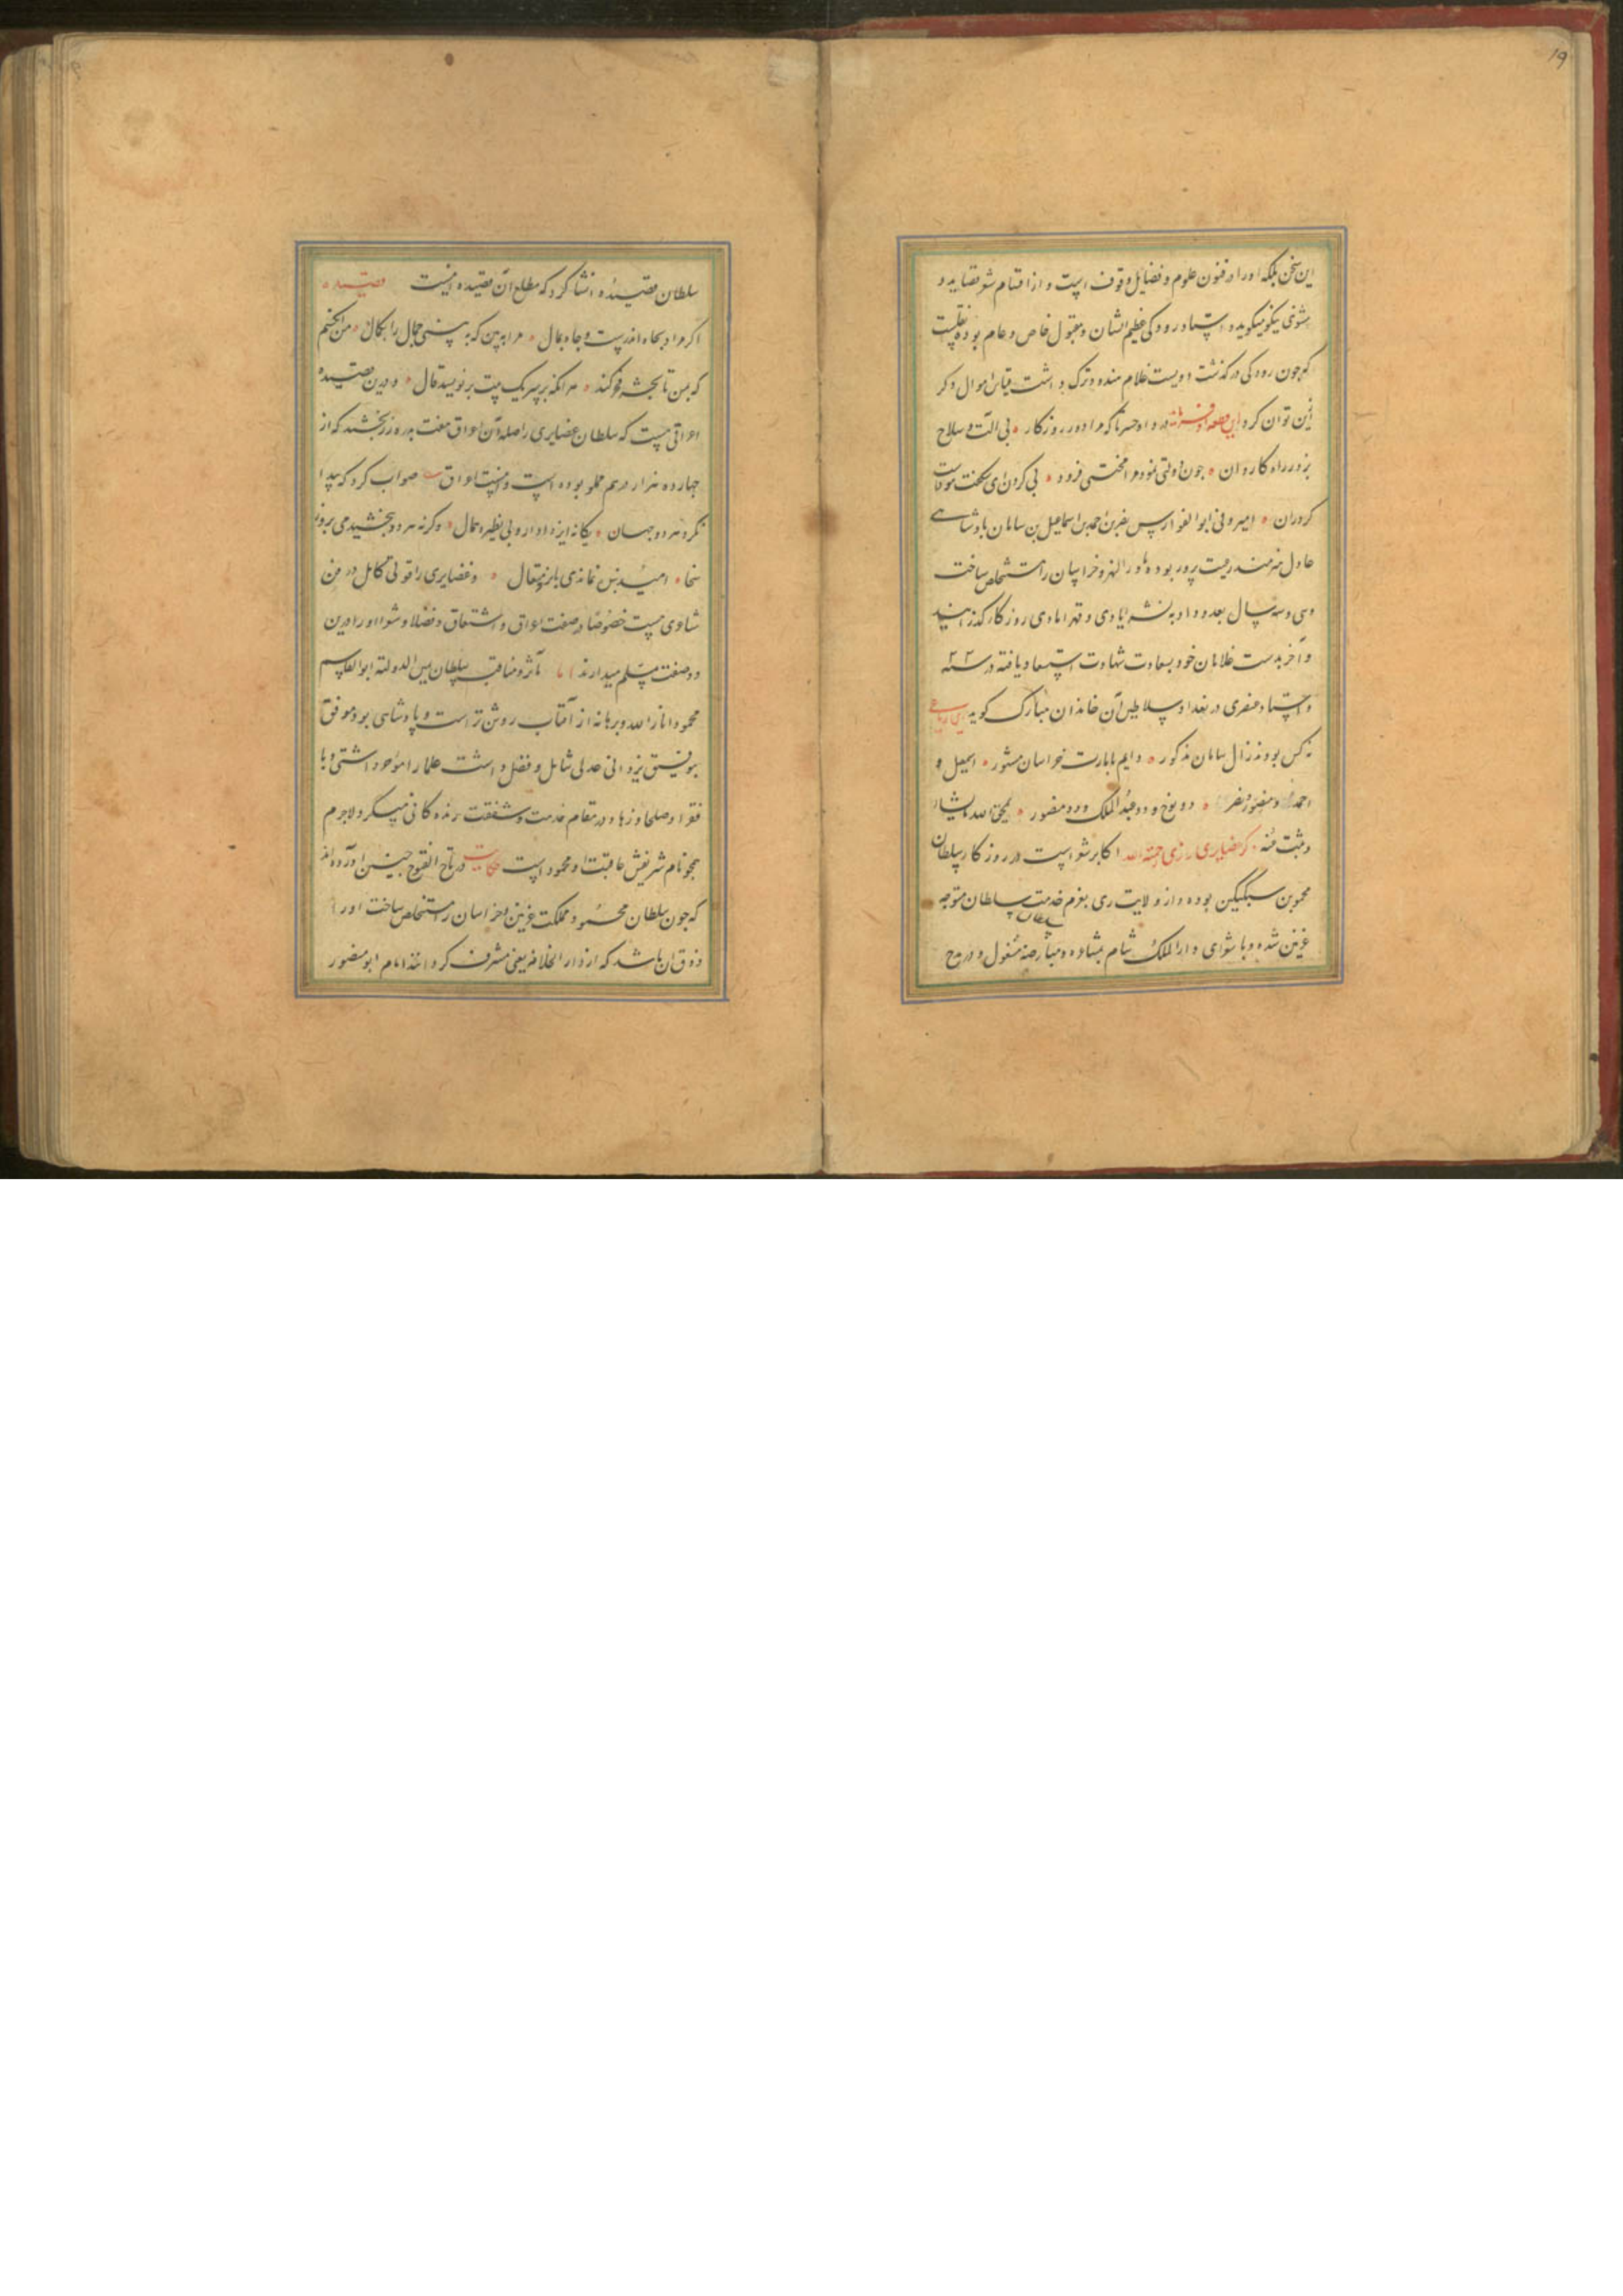 ۱۹
این سخن بلکه اورا در فنون علوم و فضایل وقوف است و از اقسام شعر قصاید و
مثنوی نیکو میگوید و استاد رودکی عظیم الشان و مقبول خاص و عام بوده نقلست
که چون رودکی درگذشت دویست غلام هندو و ترک داشت قیاس اموال دگر
ازین توان کرد این قطعه او فرماید دردا و حسرتا که مرا دور روزکار بی آلت و سلاح
بزد راه کاروان چون دولتی نمود مرا محنتی فزود بی گردن ای شگفت
گردران امیر ابوالفوارس نصر بن احمد بن اسماعیل بن سامان پادشاهی
عادل هنرمند رعیت پرور بوده ماورالنهر و خراسان را مستخلص ساخت
وسی و سه سال بعدل و داد به نشر ایادی و قهر اعادی روزکار گذرانید
و آخر بدست غلامان خود بسعادت شهادت استسعاد یافته در سنه
و استاد عنصری در تعداد سلاطین آن خاندان مبارک کوید رباعی
نه کس بودند زال سامان مذکور دایم بامارت خراسان مشهور اسمعیل و
احمد و نصر دو نوح و دو عبدالملک و دو منصور یمحو الله مایشاء
و یثبت ذکر غضایری رازی رحمة الله از اکابر شعرا است در روزکار سلطان
محمود بن سبکتکین بوده و از ولایت ری بعزم خدمت سلطان متوجه
سلطان
غزنین شده و با شعرای دار الملک شام بمشاعره و معارضه مشغول و در مدح
سلطان قصیده انشا کرد که مطلع آن قصیده اینست قصیده
اکر مراد بجاه اندرست و جاه بمال مرا ببین که ببینی جمال را بکمال من آنکسم
که بمن تا بحشر فخر کند هر آنکه بر سر یک بیت بر نویسد قال و درین قصیده
اغراقی هست که سلطان غضایری را صله آن اغراق هفت بدره زر بخشید که از
چهارده هزار درم مملو بوده است و اینست اغراق صواب کرد که پیدا
نکرد هر دو جهان یکانه ایزد دادار بی نظیر و همال وکرنه هر دو ببخشیدی بروز
سخا امید بنده نماندی بایزد متعال و غضایری را قوتی کامل در فن
شاعری هست خصوصا در صفت اغراق و اشتقاق و فضلا و شعرا اورا درین
دو صفت مسلم میدارند اما مآثر و مناقب سلطان یمین الدوله ابو القاسم
محمود انار الله برهانه از آفتاب روشن تر است و پادشاهی بود موفق
بتوفیق یزدانی عدلی شامل و فضل داشت علما را موحد داشتی و با
فقرا و صلحا و زهاد در مقام خدمت و شفقت زندگانی میکرد لاجرم
همچو نام شریفش عاقبت او محمود است حکایت در تاج الفتوح چنین آورده اند
که چون سلطان محمود مملکت غزنین و خراسان را مستخلص ساخت اورا
ذوق آن باشد که از دار الخلافه بلقبی مشرف کردانند امام ابو منصور